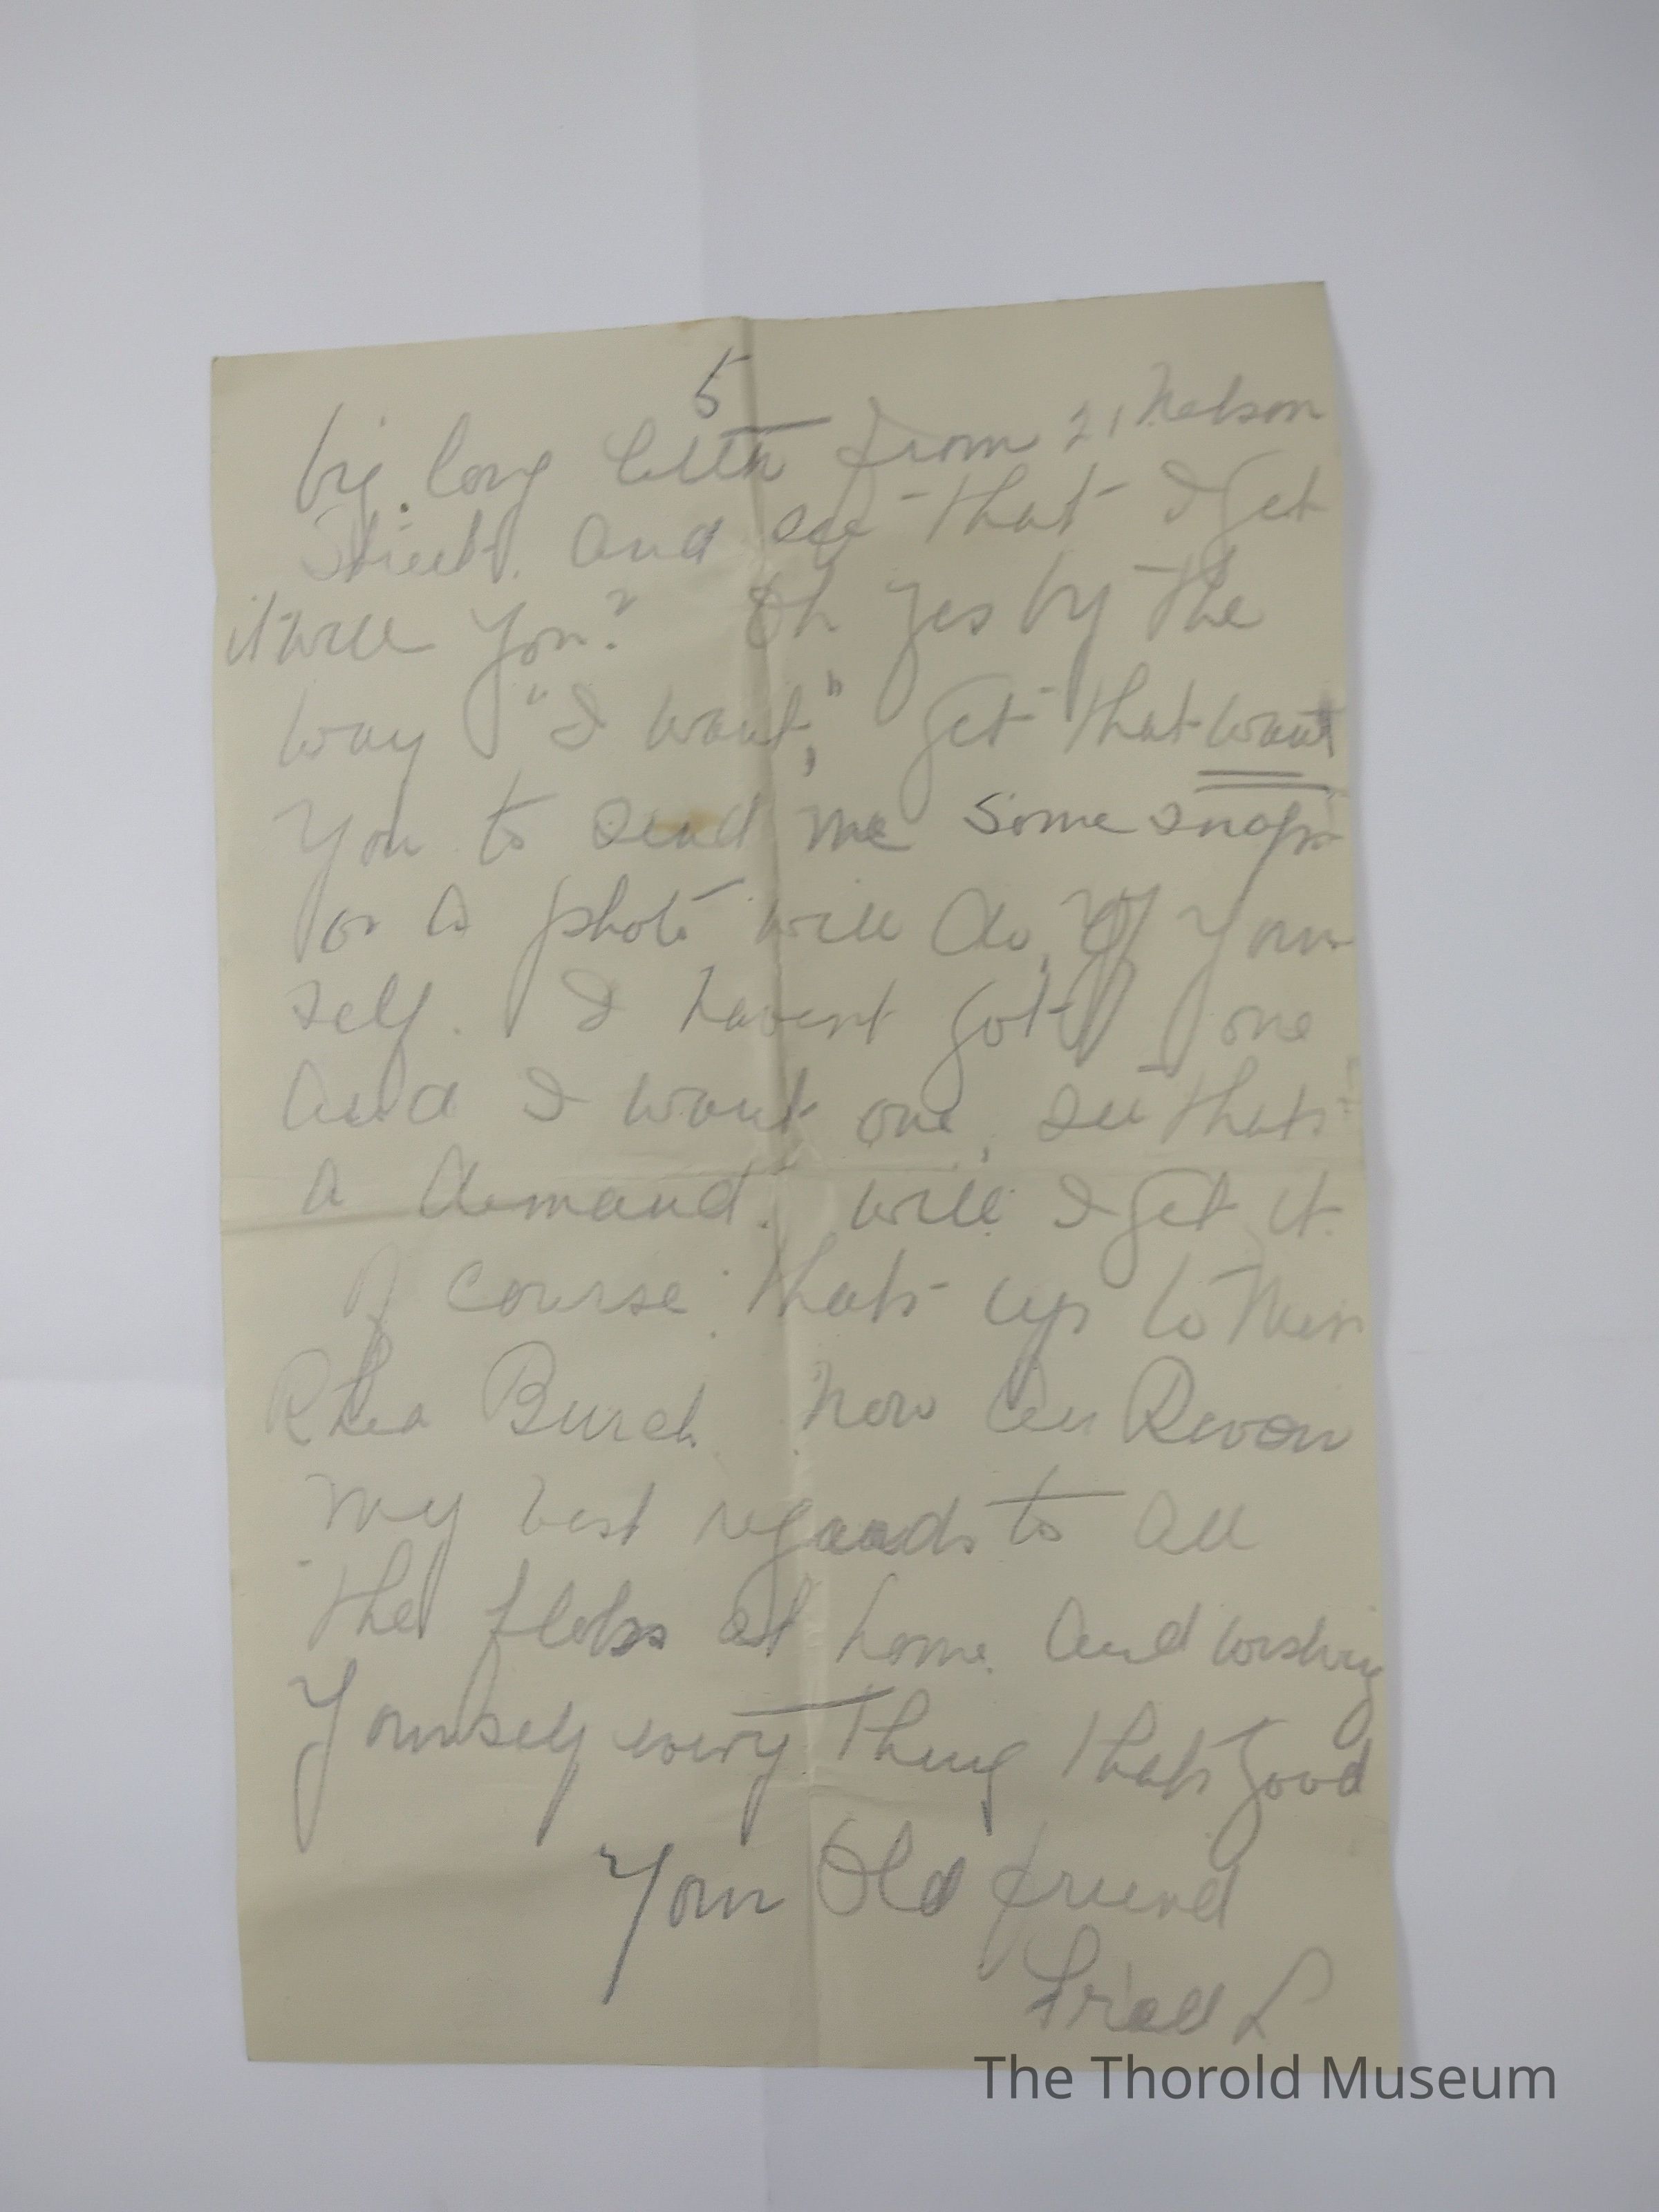 5
big. long letter from 21 Nelson
Street. and see that I get
it will you? Oh yes by the
way "I want," get that want
you to send me some snaps
or a photo will do, of your
self. I havent got one
and I want one, see thats
a demand. will I get it.
Of course thats up to Miss
Rhea Burch. Now Au Revoir
my best regards to all
the floks at home. and wishing
yourself every thing thats good
Your Old friend
L
The Thorold Museum